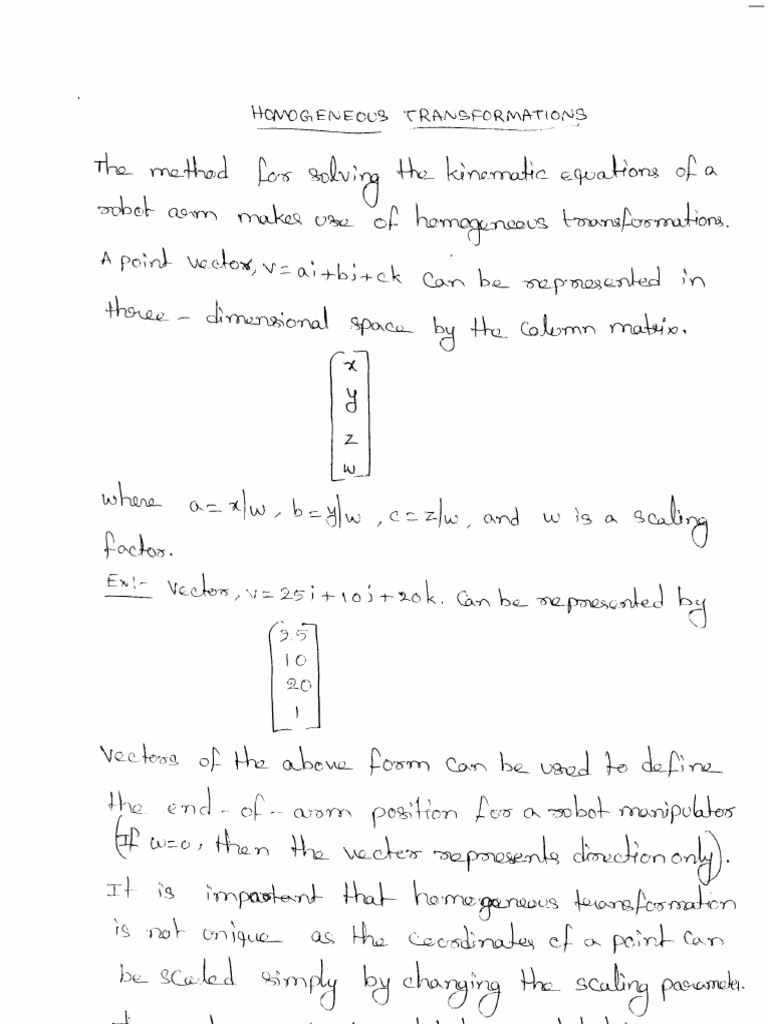 HOMOGENEOUS TRANSFORMATIONS
The method for solving the kinematic equations of a
robot arm makes use of homogeneous transformations.
A point vector, v=ai+bj+ck can be represented in
three-dimensional space by the column matrix.
x
y
z
w
where a=x/w, b=y/w, c=z/w, and w is a scaling
factor.
Ex:- Vector, v=25i+10j+20k. Can be represented by
25
10
20
1
Vectors of the above form can be used to define
the end-of-arm position for a robot manipulator
(If w=0, then the vector represents direction only).
It is important that homogeneous transformation
is not unique as the coordinates of a point can
be scaled simply by changing the scaling parameter.